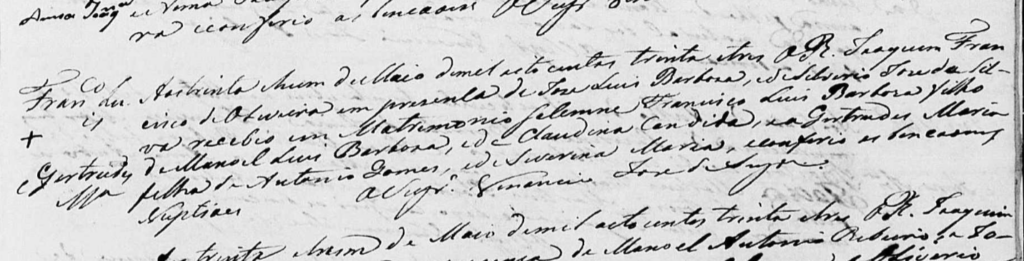 ra conferio as bencaons O Vigr.
Franco Lu. Aos trinta ehum de Maio demil oito centos trinta etres O R. Joaquim Fran
is cisco de Oliveira em presenca de Jose Luis Barboza, e de Silverio Jose da Sil-
+ va recebio em Matrimonio Solemne Francisco Luis Barboza filho
e Gertrudes de Manoel Luis Barboza, e de Claudina Candida, e a Gertrudes Maria
Ma filha de Antonio Gomes, e de Severina Maria, e conferio as bencaons
Nuptiaes O Vigr. Venancio Jose de
Aos trinta ehum de Maio demil oito centos trinta etres O R. Joaquim
de Manoel Antonio Ribeiro, e Jo-